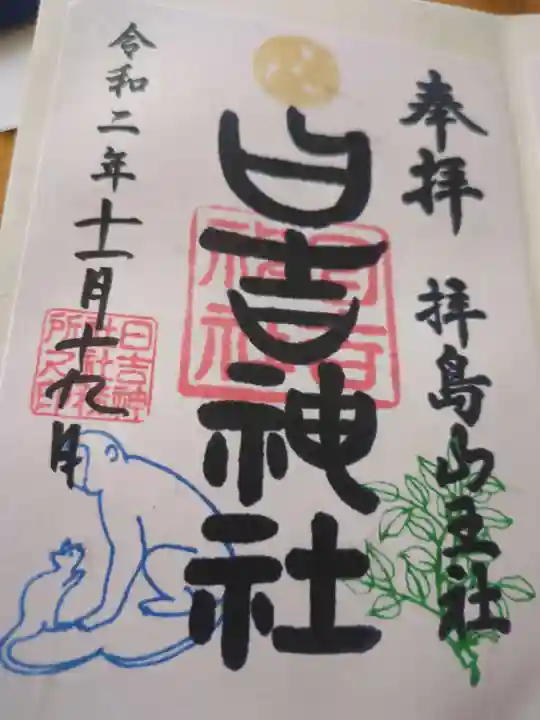 奉拝 拝島山王社
日吉神社
日吉神社
令和二年十一月十九日
日吉神
社社務
所之印